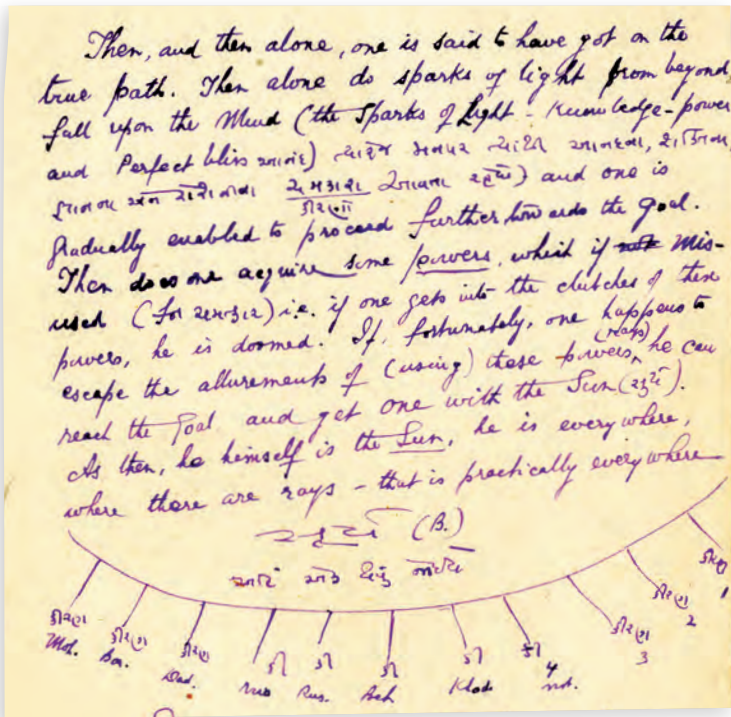 Then, and then alone, one is said to have got on the
true path. Then alone do sparks of light from beyond
fall upon the Mind (the Sparks of Light - Knowledge-power
and Perfect bliss આનંદ)
and one is
gradually enabled to proceed further towards the Goal.
Then does one acquire some powers, which if mis-
used (for ચમત્કાર) i.e. if one gets into the clutches of these
powers, he is doomed. If, fortunately, one happens to
escape the allurements of (using) these powers, (rays) he can
reach the Goal and get one with the Sun (સૂર્ય).
As then, he himself is the Sun, he is everywhere,
where there are rays - that is practically everywhere
સૂર્ય (B.)
કીરણ કીરણ કીરણ કી કી કી કી કી કીરણ કીરણ કીરણ
Dad. Rus. Khod 4 3 2 1